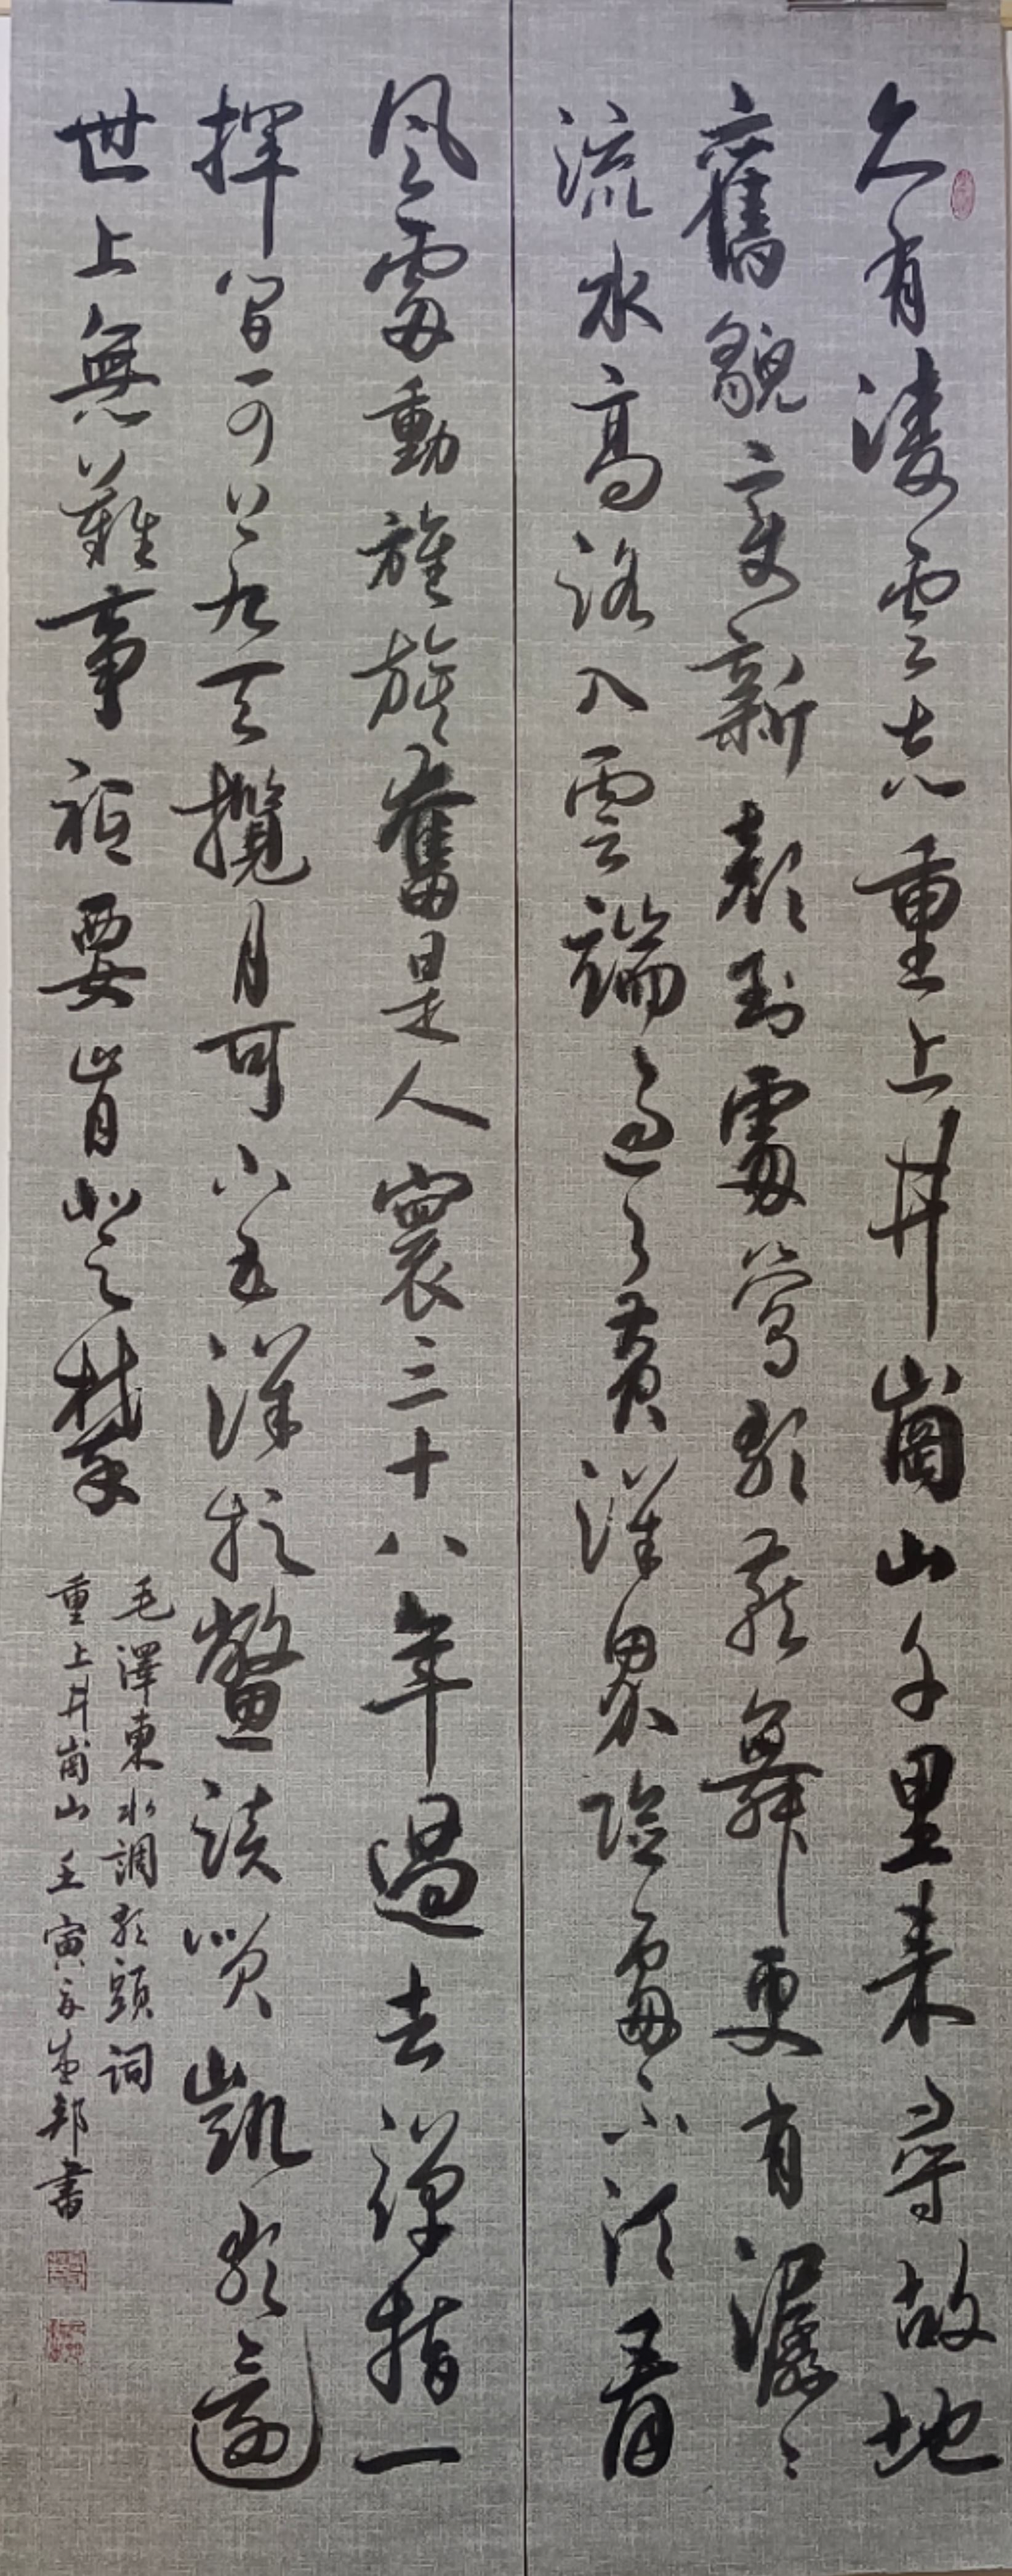 久有凌雲志重上井崗山千里来尋故地
舊貌変新顔到處莺歌燕舞更有潺々
流水高路入雲端過了黄洋界险處不須看
風雷動旌旗奮是人寰三十八年過去彈指一
揮間可上九天攬月可下五洋捉鳖談笑凱歌還
世上無難事祗要肯登攀
毛澤東水調歌頭詞
重上井崗山 壬寅 邦書